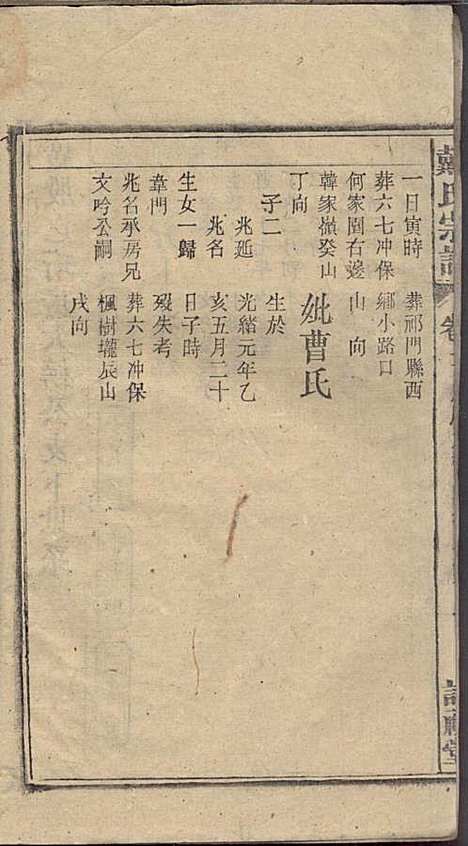 戴氏宗譜
卷
一日寅時
葬六七冲保
何家園右邊
韓家嶺癸山
丁向
子二
兆延
兆名
生女一歸
章門
兆名承房兄
文吟公嗣
葬祁門縣西
鄉小路口
山向
妣曹氏
生於
光緒元年乙
亥五月二十
日子時
歿失考
葬六七冲保
楓樹壠辰山
戌向
堂